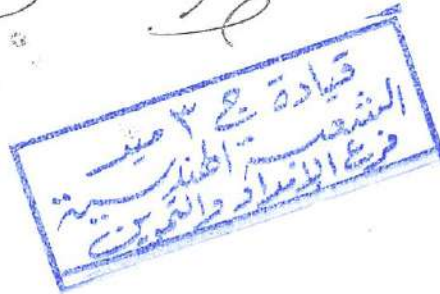 قيادة ج ٣ ميد
الشعبة الهندسية
فرع الإمداد والتموين